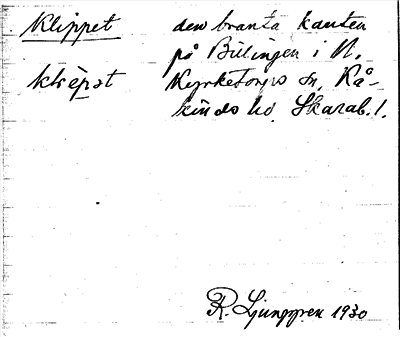 Klippet den branta kanten
på Billingen i N.
klèpət Kyrketorps sn, Kå-
kinds hd. Skarab. l.
R. Ljunggren 1930